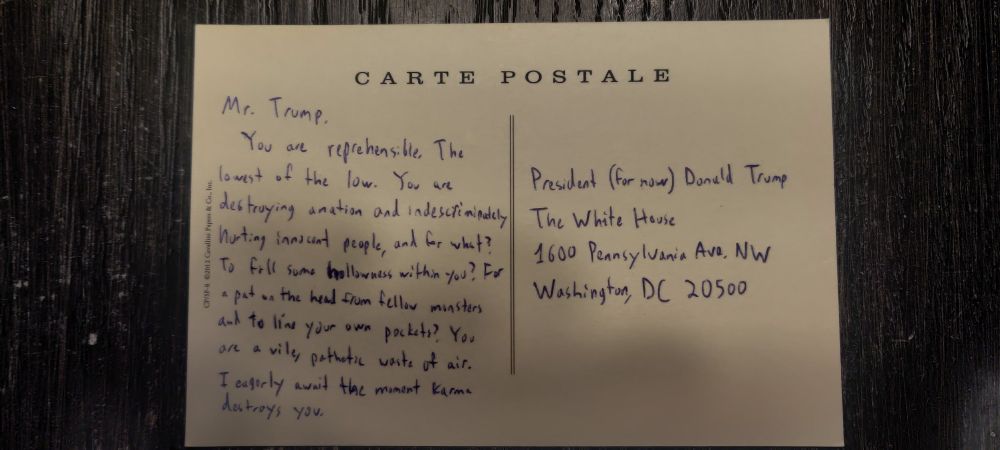 CARTE POSTALE
Mr. Trump,
You are reprehensible. The
lowest of the low. You are
destroying anation and indescriminately
hurting innocent people, and for what?
To fill some hollowness within you? For
a pat on the head from fellow monsters
and to line your own pockets? You
are a vile, pathetic waste of air.
I eagerly await the moment Karma
destroys you.
President (for now) Donald Trump
The White House
1600 Pennsylvania Ave. NW
Washington, DC 20500
©2012 Cavallini Papers & Co., Inc.